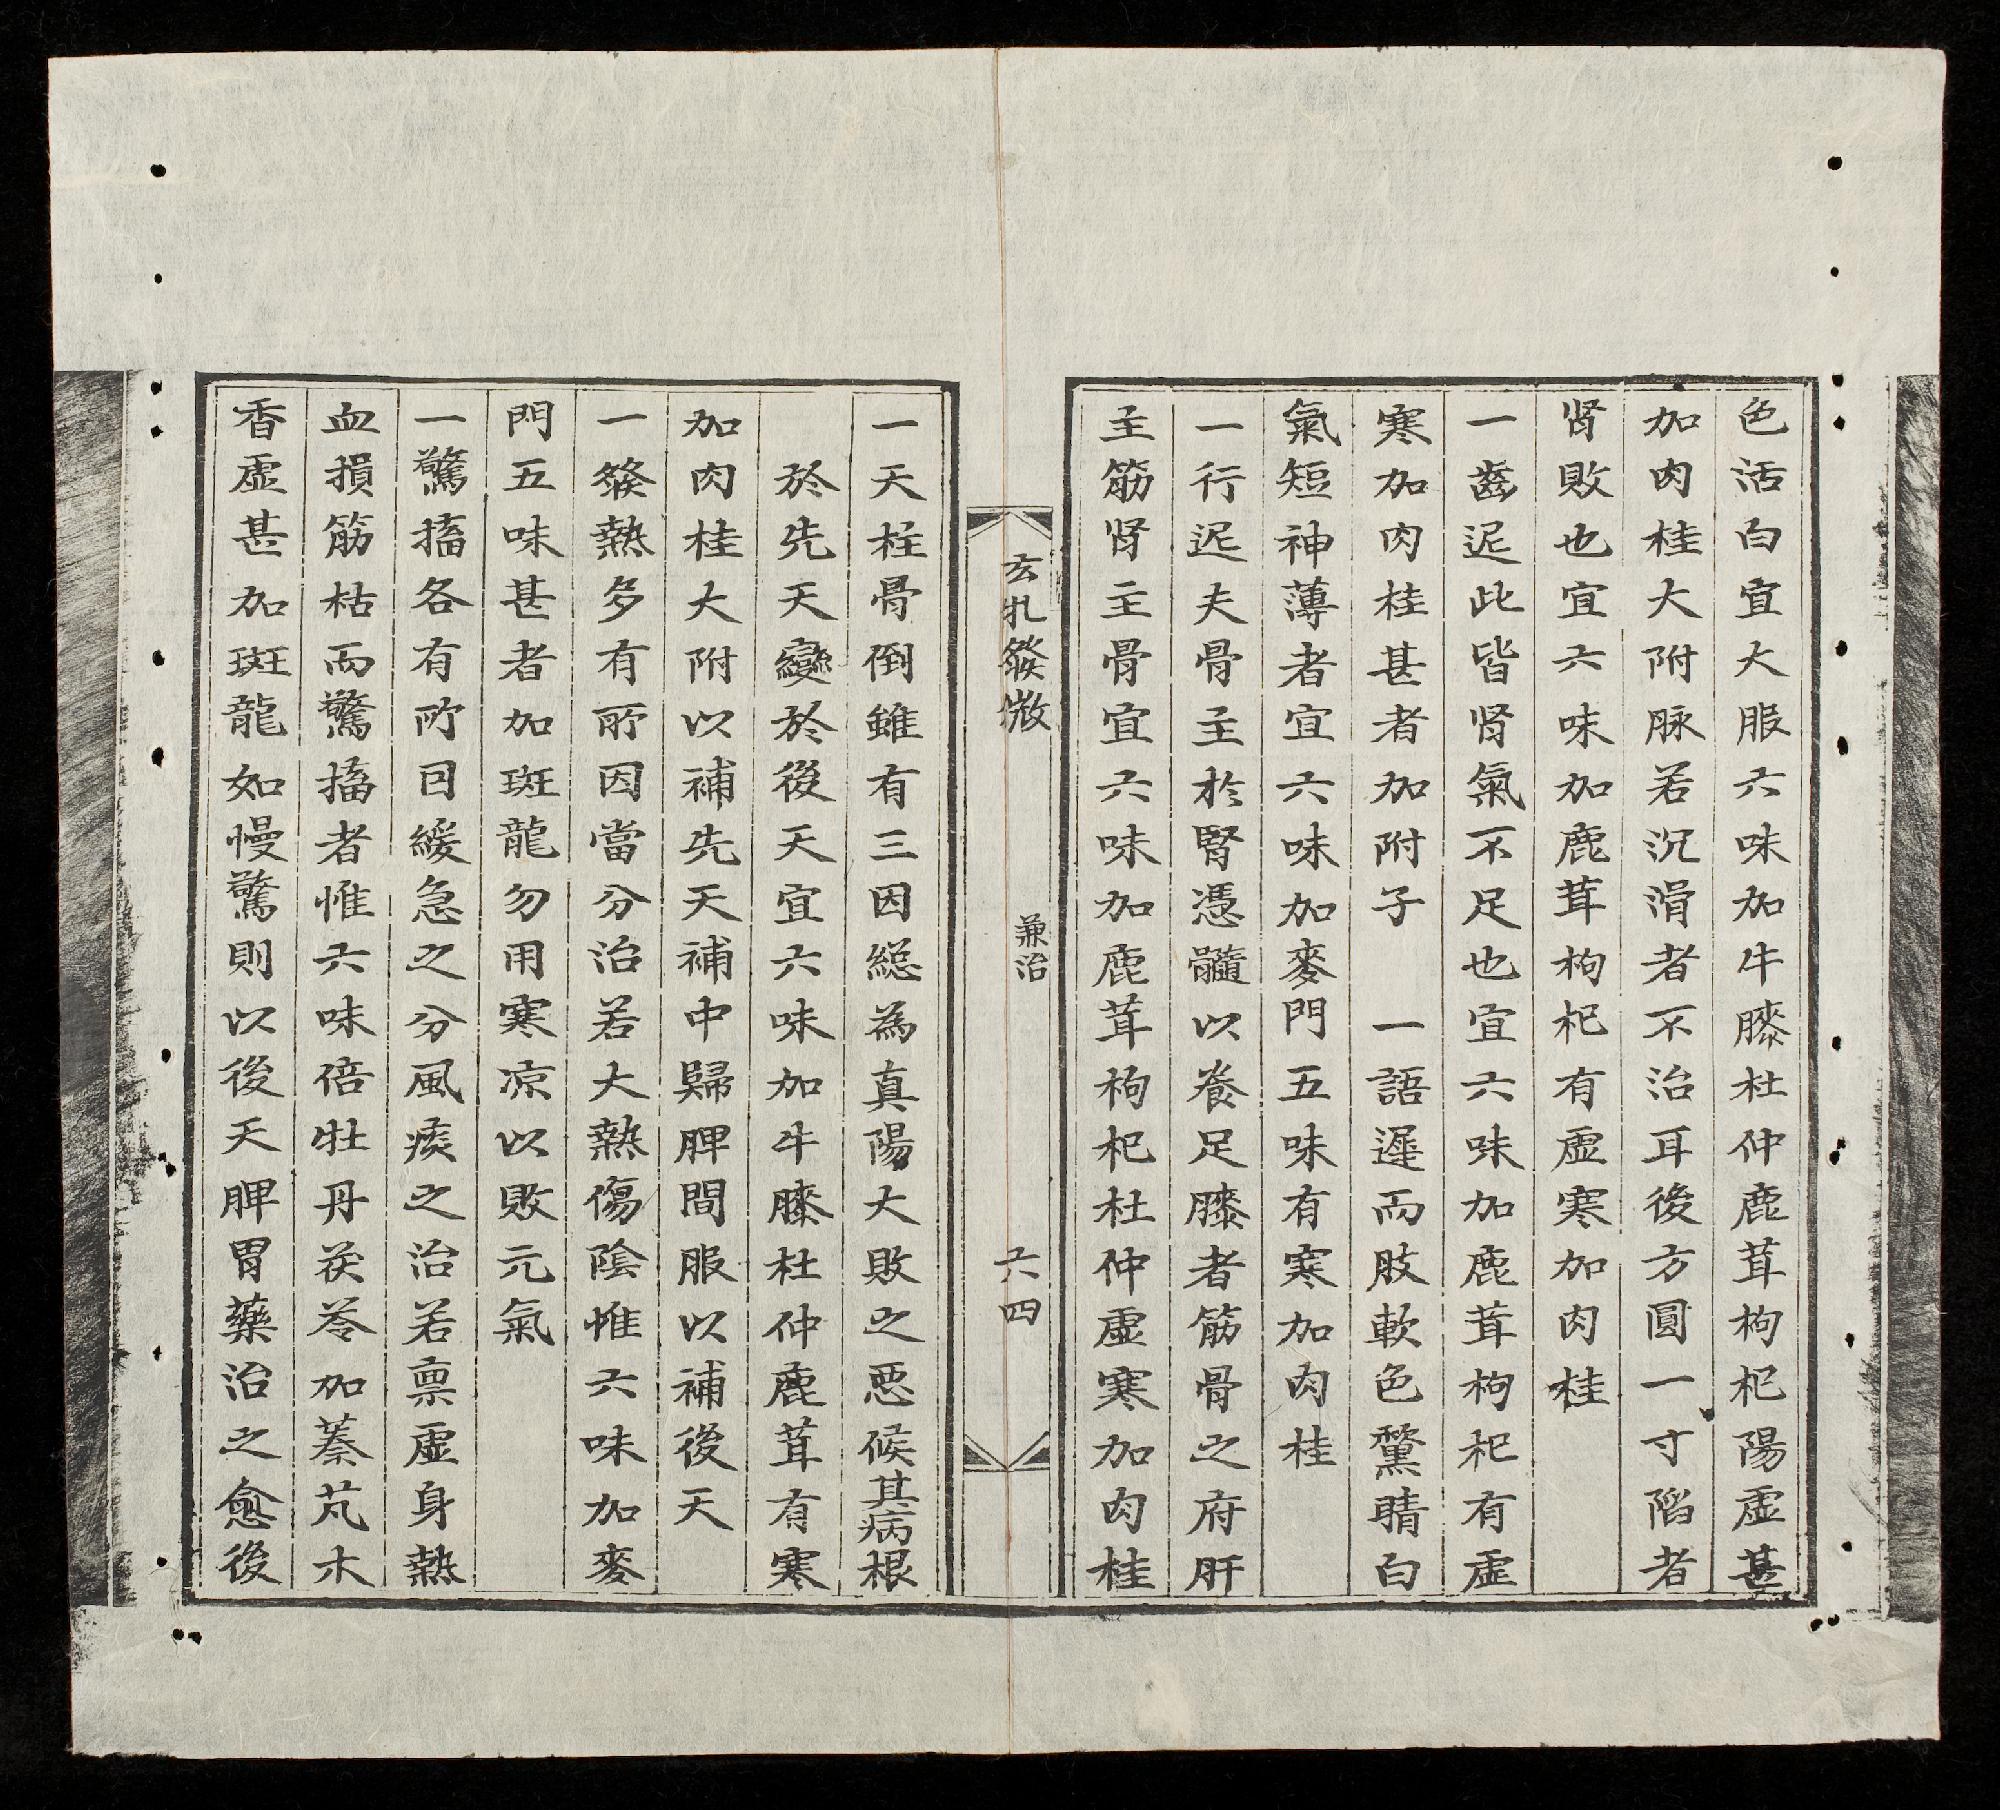 色活白宜大服六味加牛膝杜仲鹿茸枸杞陽虚甚
加肉桂大附脉若沉滑者不治耳後方圓一寸陷者
肾敗也宜六味加鹿茸枸杞有虚寒加肉桂
一齒迡此皆肾氣不足也宜六味加鹿茸枸杞有虚
寒加肉桂甚者加附子　一語遲而肢軟色黧睛白
氣短神薄者宜六味加麥門五味有寒加肉桂
一行迡夫骨主於腎憑髓以養足膝者筋骨之府肝
主筋肾主骨宜六味加鹿茸枸杞杜仲虚寒加肉桂
玄牝發微　兼治　六四
一天柱骨倒雖有三因総為真陽大敗之恶候其病根
於先天變於後天宜六味加牛膝杜仲鹿茸有寒
加肉桂大附以補先天補中歸脾間服以補後天
一發熱多有所因當分治若大熱傷陰惟六味加麥
門五味甚者加斑龍勿用寒凉以敗元氣
一驚搐各有所因緩急之分風痰之治若禀虚身熱
血損筋枯而驚搐者惟六味倍牡丹茯苓加蓁芃木
香虚甚加斑龍如慢驚則以後天脾胃藥治之愈後